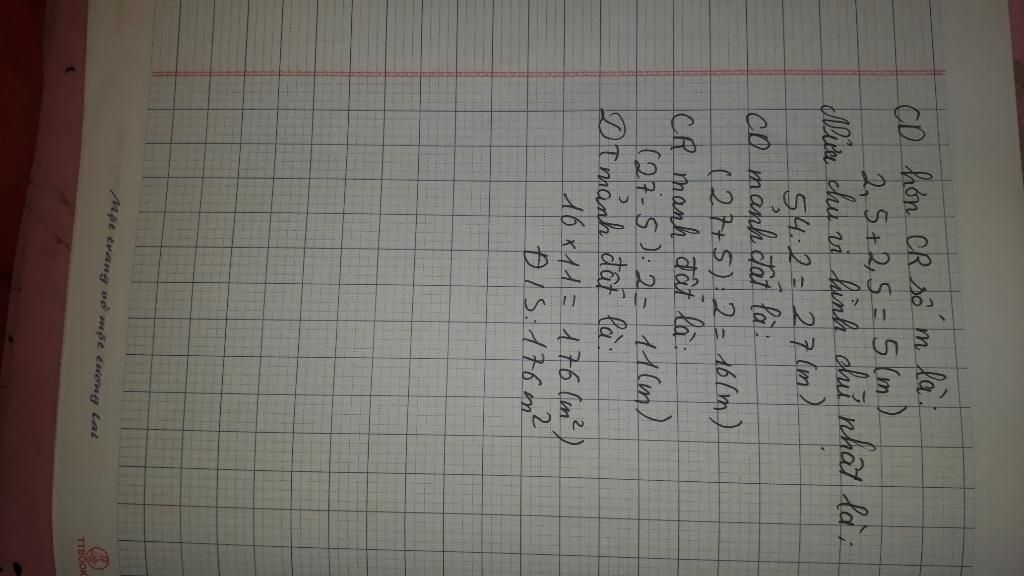 CD hơn CR số m là:
2,5 + 2,5 = 5 (m)
Nửa chu vi hình chữ nhật là:
54 : 2 = 27 (m)
CD mảnh đất là:
(27 + 5) : 2 = 16 (m)
CR mảnh đất là:
(27 - 5) : 2 = 11 (m)
DT mảnh đất là:
16 × 11 = 176 (m²)
Đ/S: 176 m²
TTBOOK